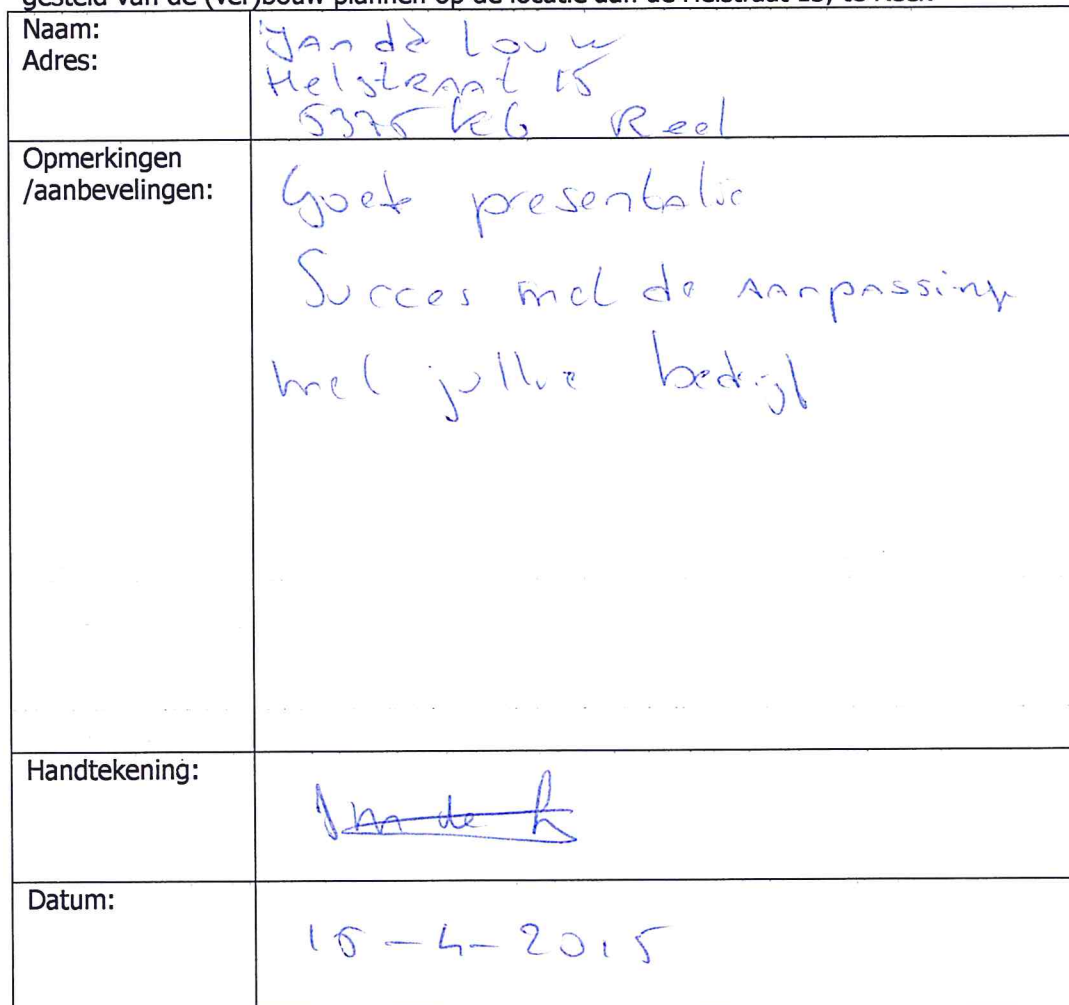 gesteld van de (ver)bouw plannen op de locatie aan de Helstraat 15, te Reek
Naam:
Adres:
Jan de Louw
Helstraat 15
5375 KG Reek
Opmerkingen
/aanbevelingen:
Goet presentatie
Succes met de aanpassing
met jullie bedrijf
Handtekening:
Jan de L
Datum:
15-4-2015